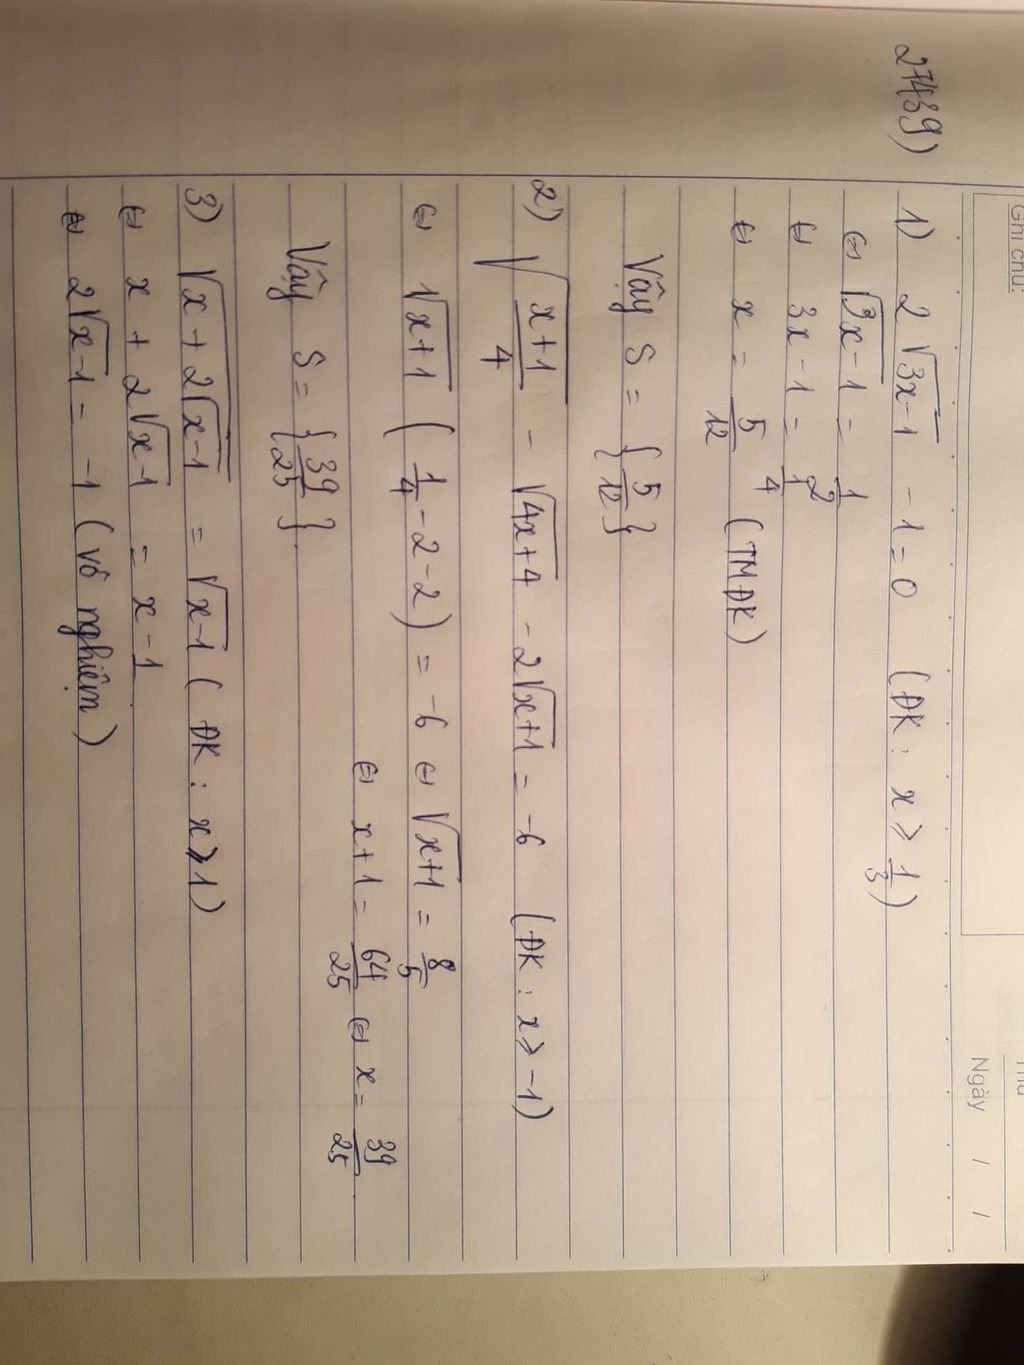 Ghi chú:
Ngày / /
27439)
1) 2√(3x-1) - 1 = 0 (ĐK: x ⩾ 1/3)
⇔ √(3x-1) = 1/2
⇔ 3x - 1 = 1/4
⇔ x = 5/12 (TMĐK)
Vậy S = {5/12}
2) √((x+1)/4) - √(4x+4) - 2√(x+1) = -6 (ĐK: x ⩾ -1)
⇔ √(x+1) (1/4 - 2 - 2) = -6 ⇔ √(x+1) = 8/5
⇔ x+1 = 64/25 ⇔ x = 39/25
Vậy S = {39/25}.
3) √(x+2√(x-1)) = √(x-1) (ĐK: x ⩾ 1)
⇔ x + 2√(x-1) = x - 1
⇔ 2√(x-1) = -1 (vô nghiệm)